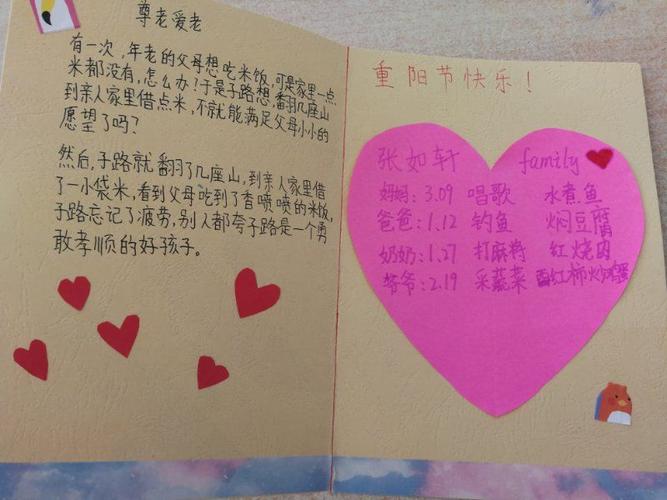 尊老爱老
有一次,年老的父母想吃米饭,可是家里一点
米都没有,怎么办?于是子路想,翻过几座山
到亲人家里借点米,不就能满足父母小小的
愿望了吗?
然后,子路就翻了几座山,到亲人家里借
了一小袋米,看到父母吃到了香喷喷的米饭,
子路忘记了疲劳,别人都夸子路是一个勇
敢孝顺的好孩子。
重阳节快乐!
张如轩 family
妈妈:3.09 唱歌 水煮鱼
爸爸:1.12 钓鱼 焖豆腐
奶奶:1.27 打麻将 红烧肉
爷爷:2.19 采蔬菜 红柿炒鸡蛋